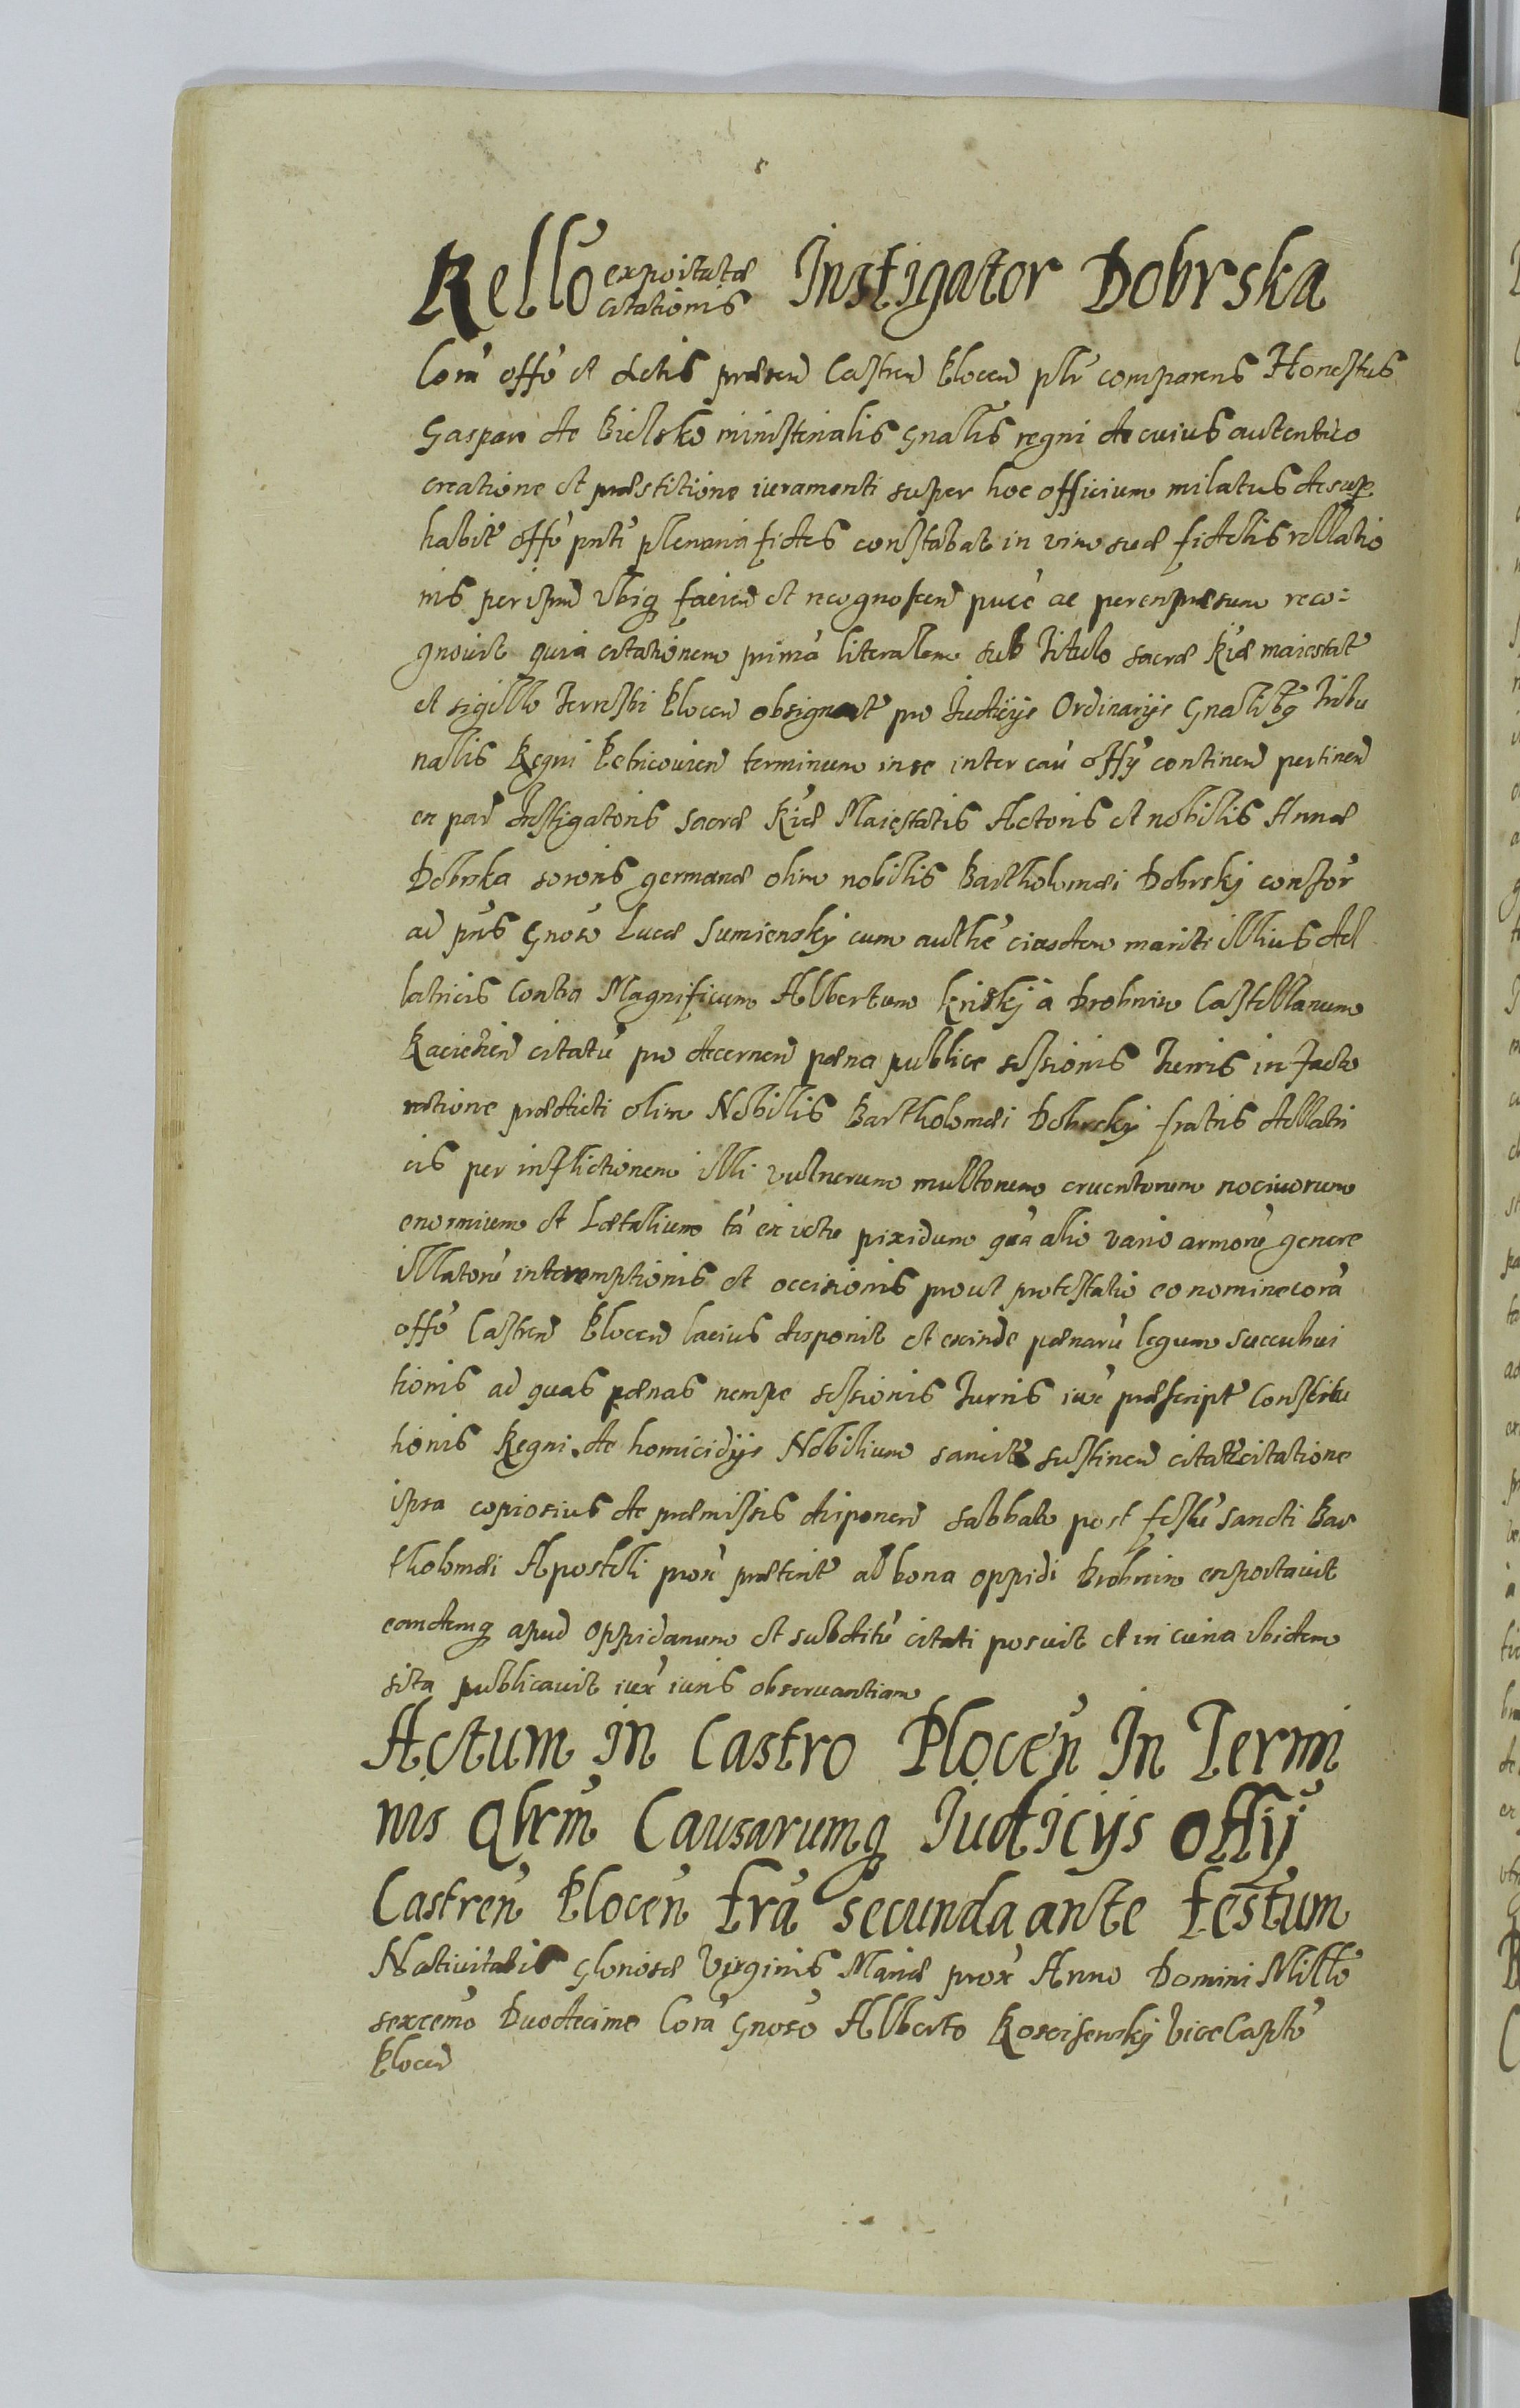 Rello exportatæ citationis Instigator Dobrska
Corā offo et Actis præsen Castren Plocen plr comparens Honestus
Gaspar de Bielsko ministerialis Gnalis regni de cuius autentico
creatione et præstitione iuramenti super hoc officium milatus desup
habit offo pnti plenaria fides constabat in vim suæ fidelis rellatio
nis per ipsum ubiq facien et recognoscen pucē ac per expræsum reco:
gnouit quia citationem primā literalem sub Titulo sacræ Riæ maiestat
et sigillo Terrestri Plocen obsignat pro Judicijs Ordinarijs Gnalibq Tribu
nalis Regni Petricouien terminum in se inter cau offij continen pertinen
ex par Instigatoris Sacræ Riæ Maiestatis Actoris et nobilis Annæ
Dobrska sororis germanæ olim nobilis Bartholomæi Dobrskj consor
ad pns Gnosi Lucæ Sumienskj cum authē eiusdem mariti illius del
latricis Contra Magnificum Albertum Kriskj à Drobnin Castellanum
Raciezien citatū pro decernen pæna publice sessionis Turris in facto
ratione prædicti olim Nobilis Bartholomæi Dobrskj fratris dellatri
cis per inflictionem illi vulnerum multorum cruentorum nociuorum
enormium et Lætalium tā ex ictu pixidum quā alio vario armorū genere
illatorū interemptionis et occisionis prout protestatio eo nomine corā
offo Castren Plocen lacius disponit et exinde pænarū legum succubui
tionis ad quas pænas nempe sessionis Turris iux præscript Constitu
tionis Regni de homicidijs Nobilium sancit sustinen citat citatione
ipsa copiosius de præmissis disponen sabbato post festū Sancti Bar
tholomæi Apostoli prox præterit ad bona oppidi Drobnin exportauit
eandemq apud Oppidanum et subditū citati posuit et in curia ibidem
sita publicauit iux iuris obseruantiam
Actum in Castro Plocen In Termi
nis Qbrm Causarumq Judicijs offij
Castren Plocen fra secunda ante festum
Natiuitatis Gloriosæ Virginis Mariæ prox Anno Domini Millo
sexcemo Duodecimo Corā Gnoso Alberto Kosciesenskj ViceCapto
Plocen